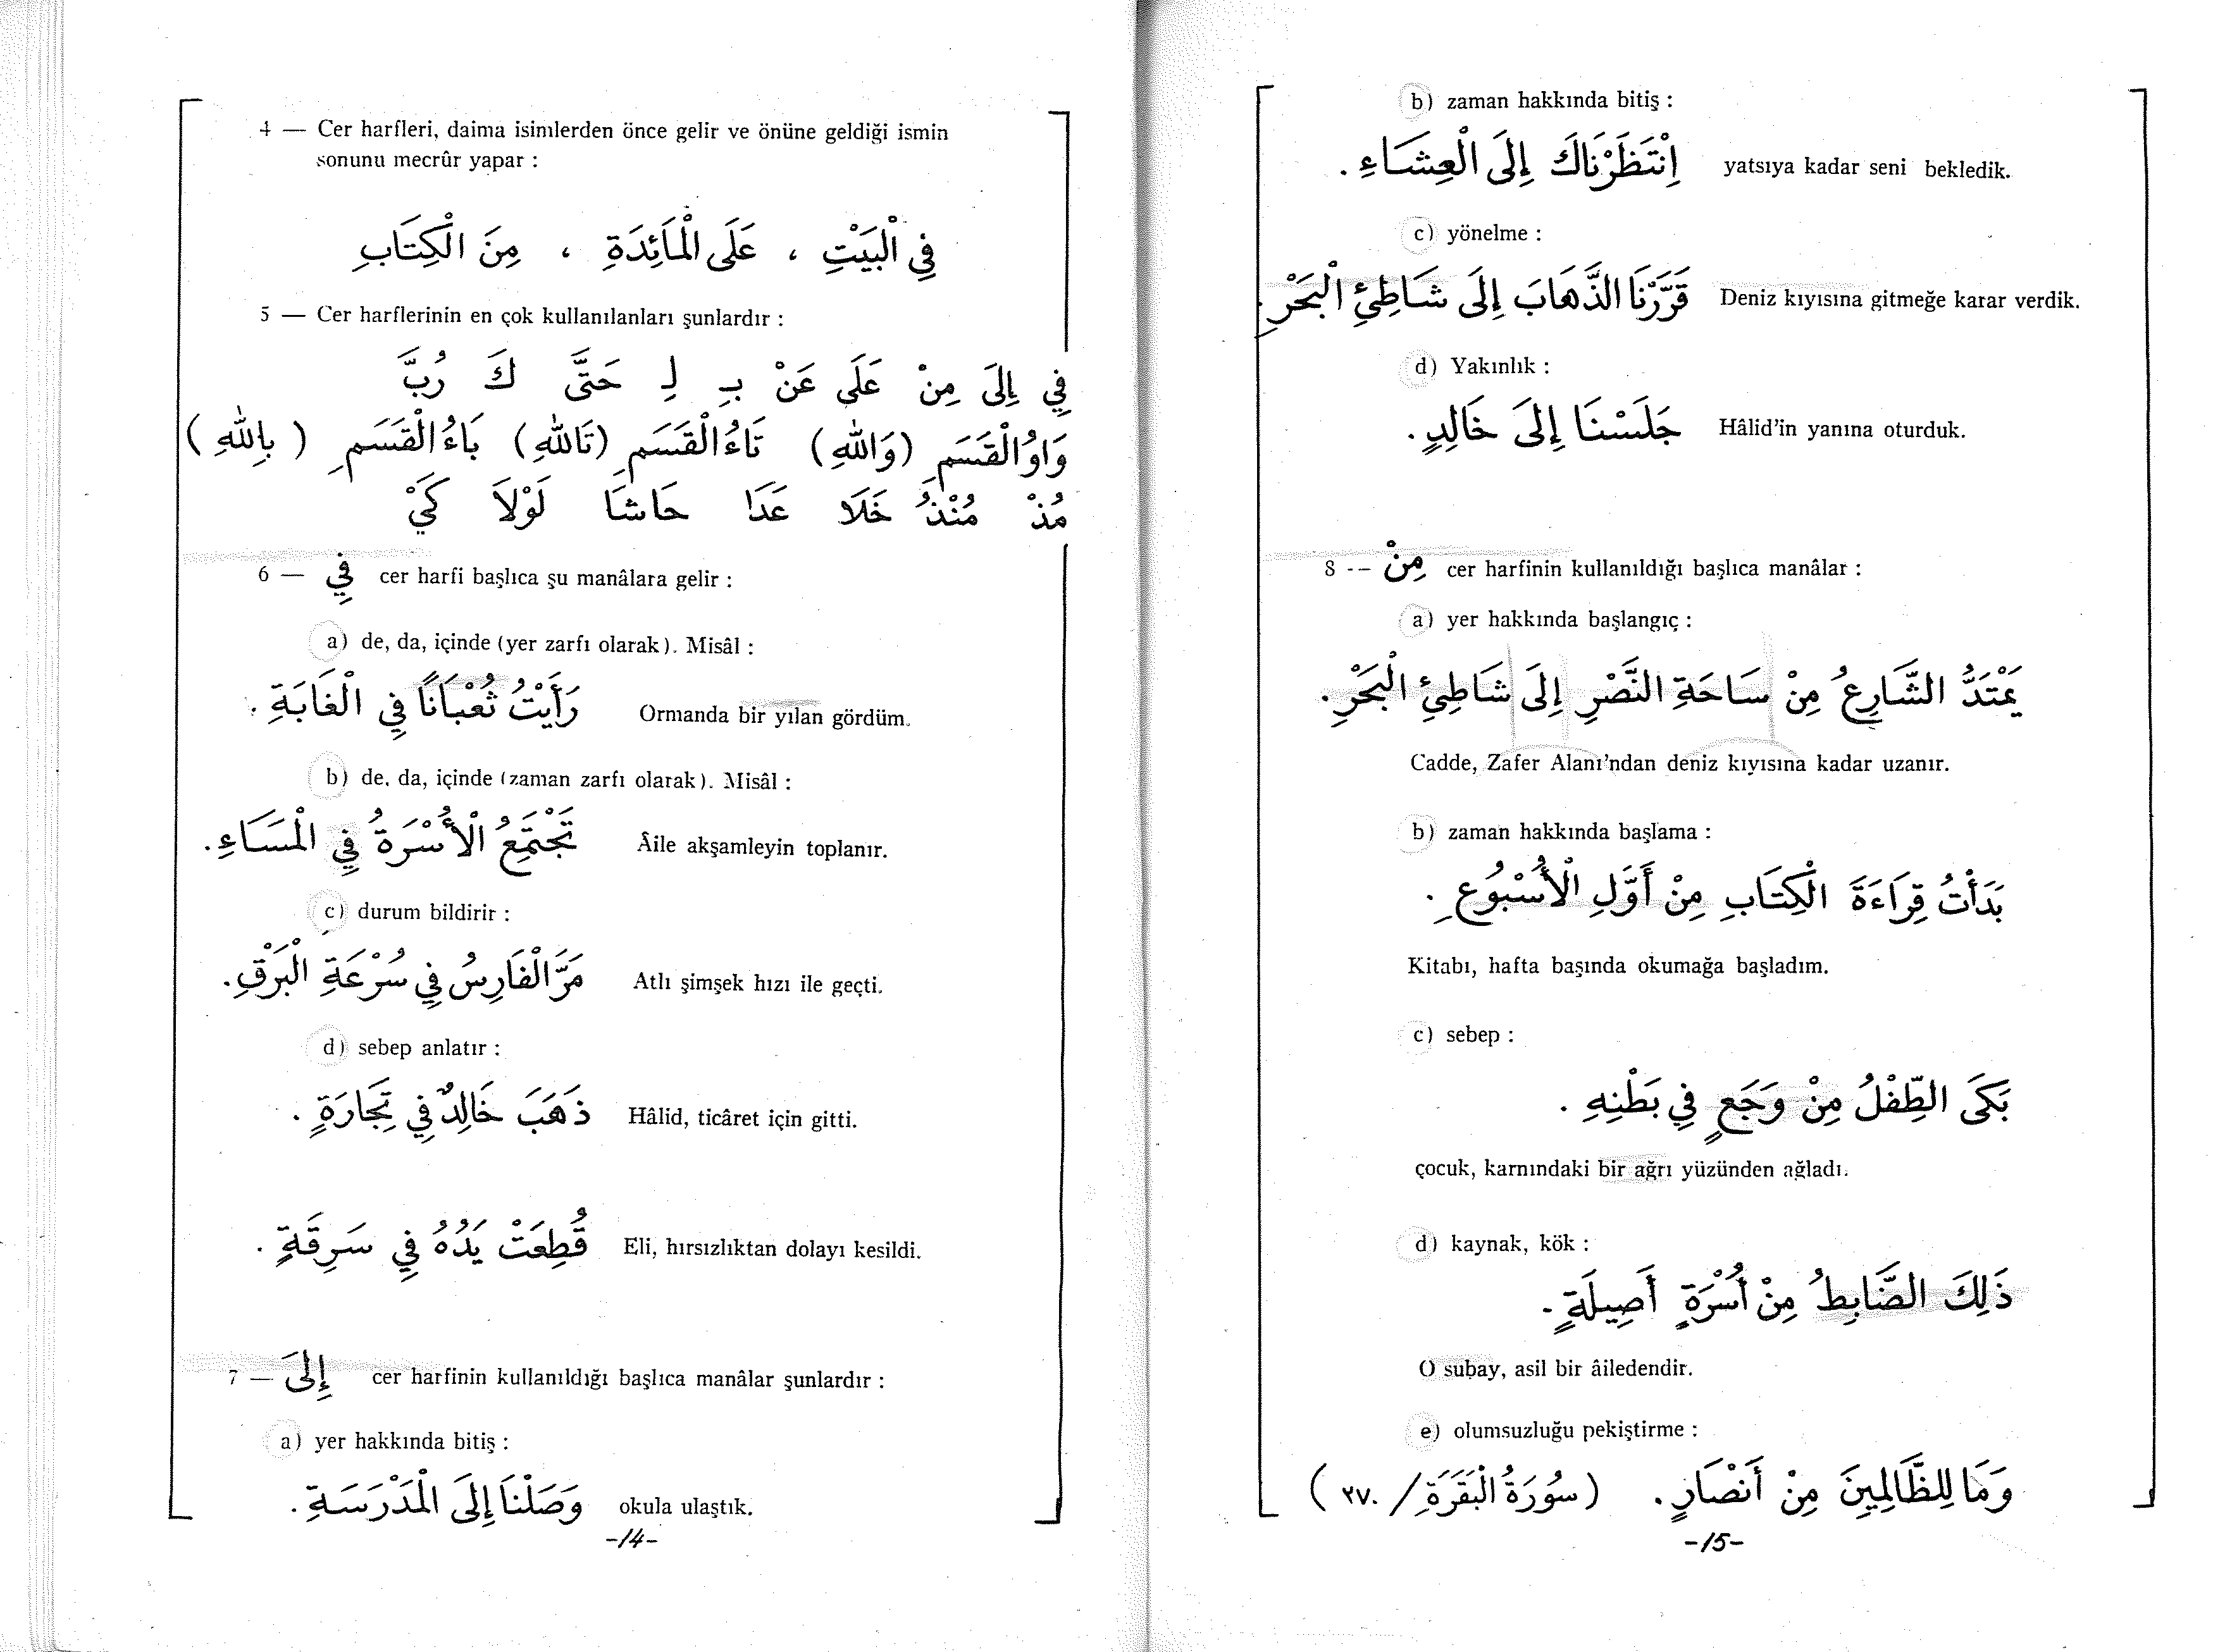 4 — Cer harfleri, daima isimlerden önce gelir ve önüne geldiği ismin
sonunu mecrûr yapar :
فِي الْبَيْتِ ، عَلَى الْمَائِدَةِ ، مِنَ الْكِتَابِ
5 — Cer harflerinin en çok kullanılanları şunlardır :
فِي إِلَى مِنْ عَلَى عَنْ بِـ لِـ حَتَّى كَ رُبَّ
وَاوُ الْقَسَمِ (وَاللهِ) تَاءُ الْقَسَمِ (تَاللهِ) بَاءُ الْقَسَمِ (بِاللهِ)
مُذْ مُنْذُ خَلَا عَدَا حَاشَا لَوْلَا كَيْ
6 — فِي cer harfi başlıca şu manâlara gelir :
a) de, da, içinde (yer zarfı olarak). Misâl :
رَأَيْتُ ثُعْبَانًا فِي الْغَابَةِ . Ormanda bir yılan gördüm.
b) de, da, içinde (zaman zarfı olarak). Misâl :
تَجْتَمِعُ الْأُسْرَةُ فِي الْمَسَاءِ . Âile akşamleyin toplanır.
c) durum bildirir :
مَرَّ الْفَارِسُ فِي سُرْعَةِ الْبَرْقِ . Atlı şimşek hızı ile geçti.
d) sebep anlatır :
ذَهَبَ خَالِدٌ فِي تِجَارَةٍ . Hâlid, ticâret için gitti.
قُطِعَتْ يَدُهُ فِي سَرِقَةٍ . Eli, hırsızlıktan dolayı kesildi.
7 — إِلَى cer harfinin kullanıldığı başlıca manâlar şunlardır :
a) yer hakkında bitiş :
وَصَلْنَا إِلَى الْمَدْرَسَةِ . okula ulaştık.
-14-
b) zaman hakkında bitiş :
اِنْتَظَرْنَاكَ إِلَى الْعِشَاءِ . yatsıya kadar seni bekledik.
c) yönelme :
قَرَّرْنَا الذَّهَابَ إِلَى شَاطِئِ الْبَحْرِ . Deniz kıyısına gitmeğe karar verdik.
d) Yakınlık :
جَلَسْنَا إِلَى خَالِدٍ . Hâlid'in yanına oturduk.
8 -- مِنْ cer harfinin kullanıldığı başlıca manâlar :
a) yer hakkında başlangıç :
يَمْتَدُّ الشَّارِعُ مِنْ سَاحَةِ النَّصْرِ إِلَى شَاطِئِ الْبَحْرِ .
Cadde, Zafer Alanı'ndan deniz kıyısına kadar uzanır.
b) zaman hakkında başlama :
بَدَأْتُ قِرَاءَةَ الْكِتَابِ مِنْ أَوَّلِ الْأُسْبُوعِ .
Kitabı, hafta başında okumağa başladım.
c) sebep :
بَكَى الطِّفْلُ مِنْ وَجَعٍ فِي بَطْنِهِ .
çocuk, karnındaki bir ağrı yüzünden ağladı.
d) kaynak, kök :
ذَلِكَ الضَّابِطُ مِنْ أُسْرَةٍ أَصِيلَةٍ .
O subay, asil bir âiledendir.
e) olumsuzluğu pekiştirme :
وَمَا لِلظَّالِمِينَ مِنْ أَنْصَارٍ . (سُورَةُ الْبَقَرَةِ / ٢٧٠)
-15-